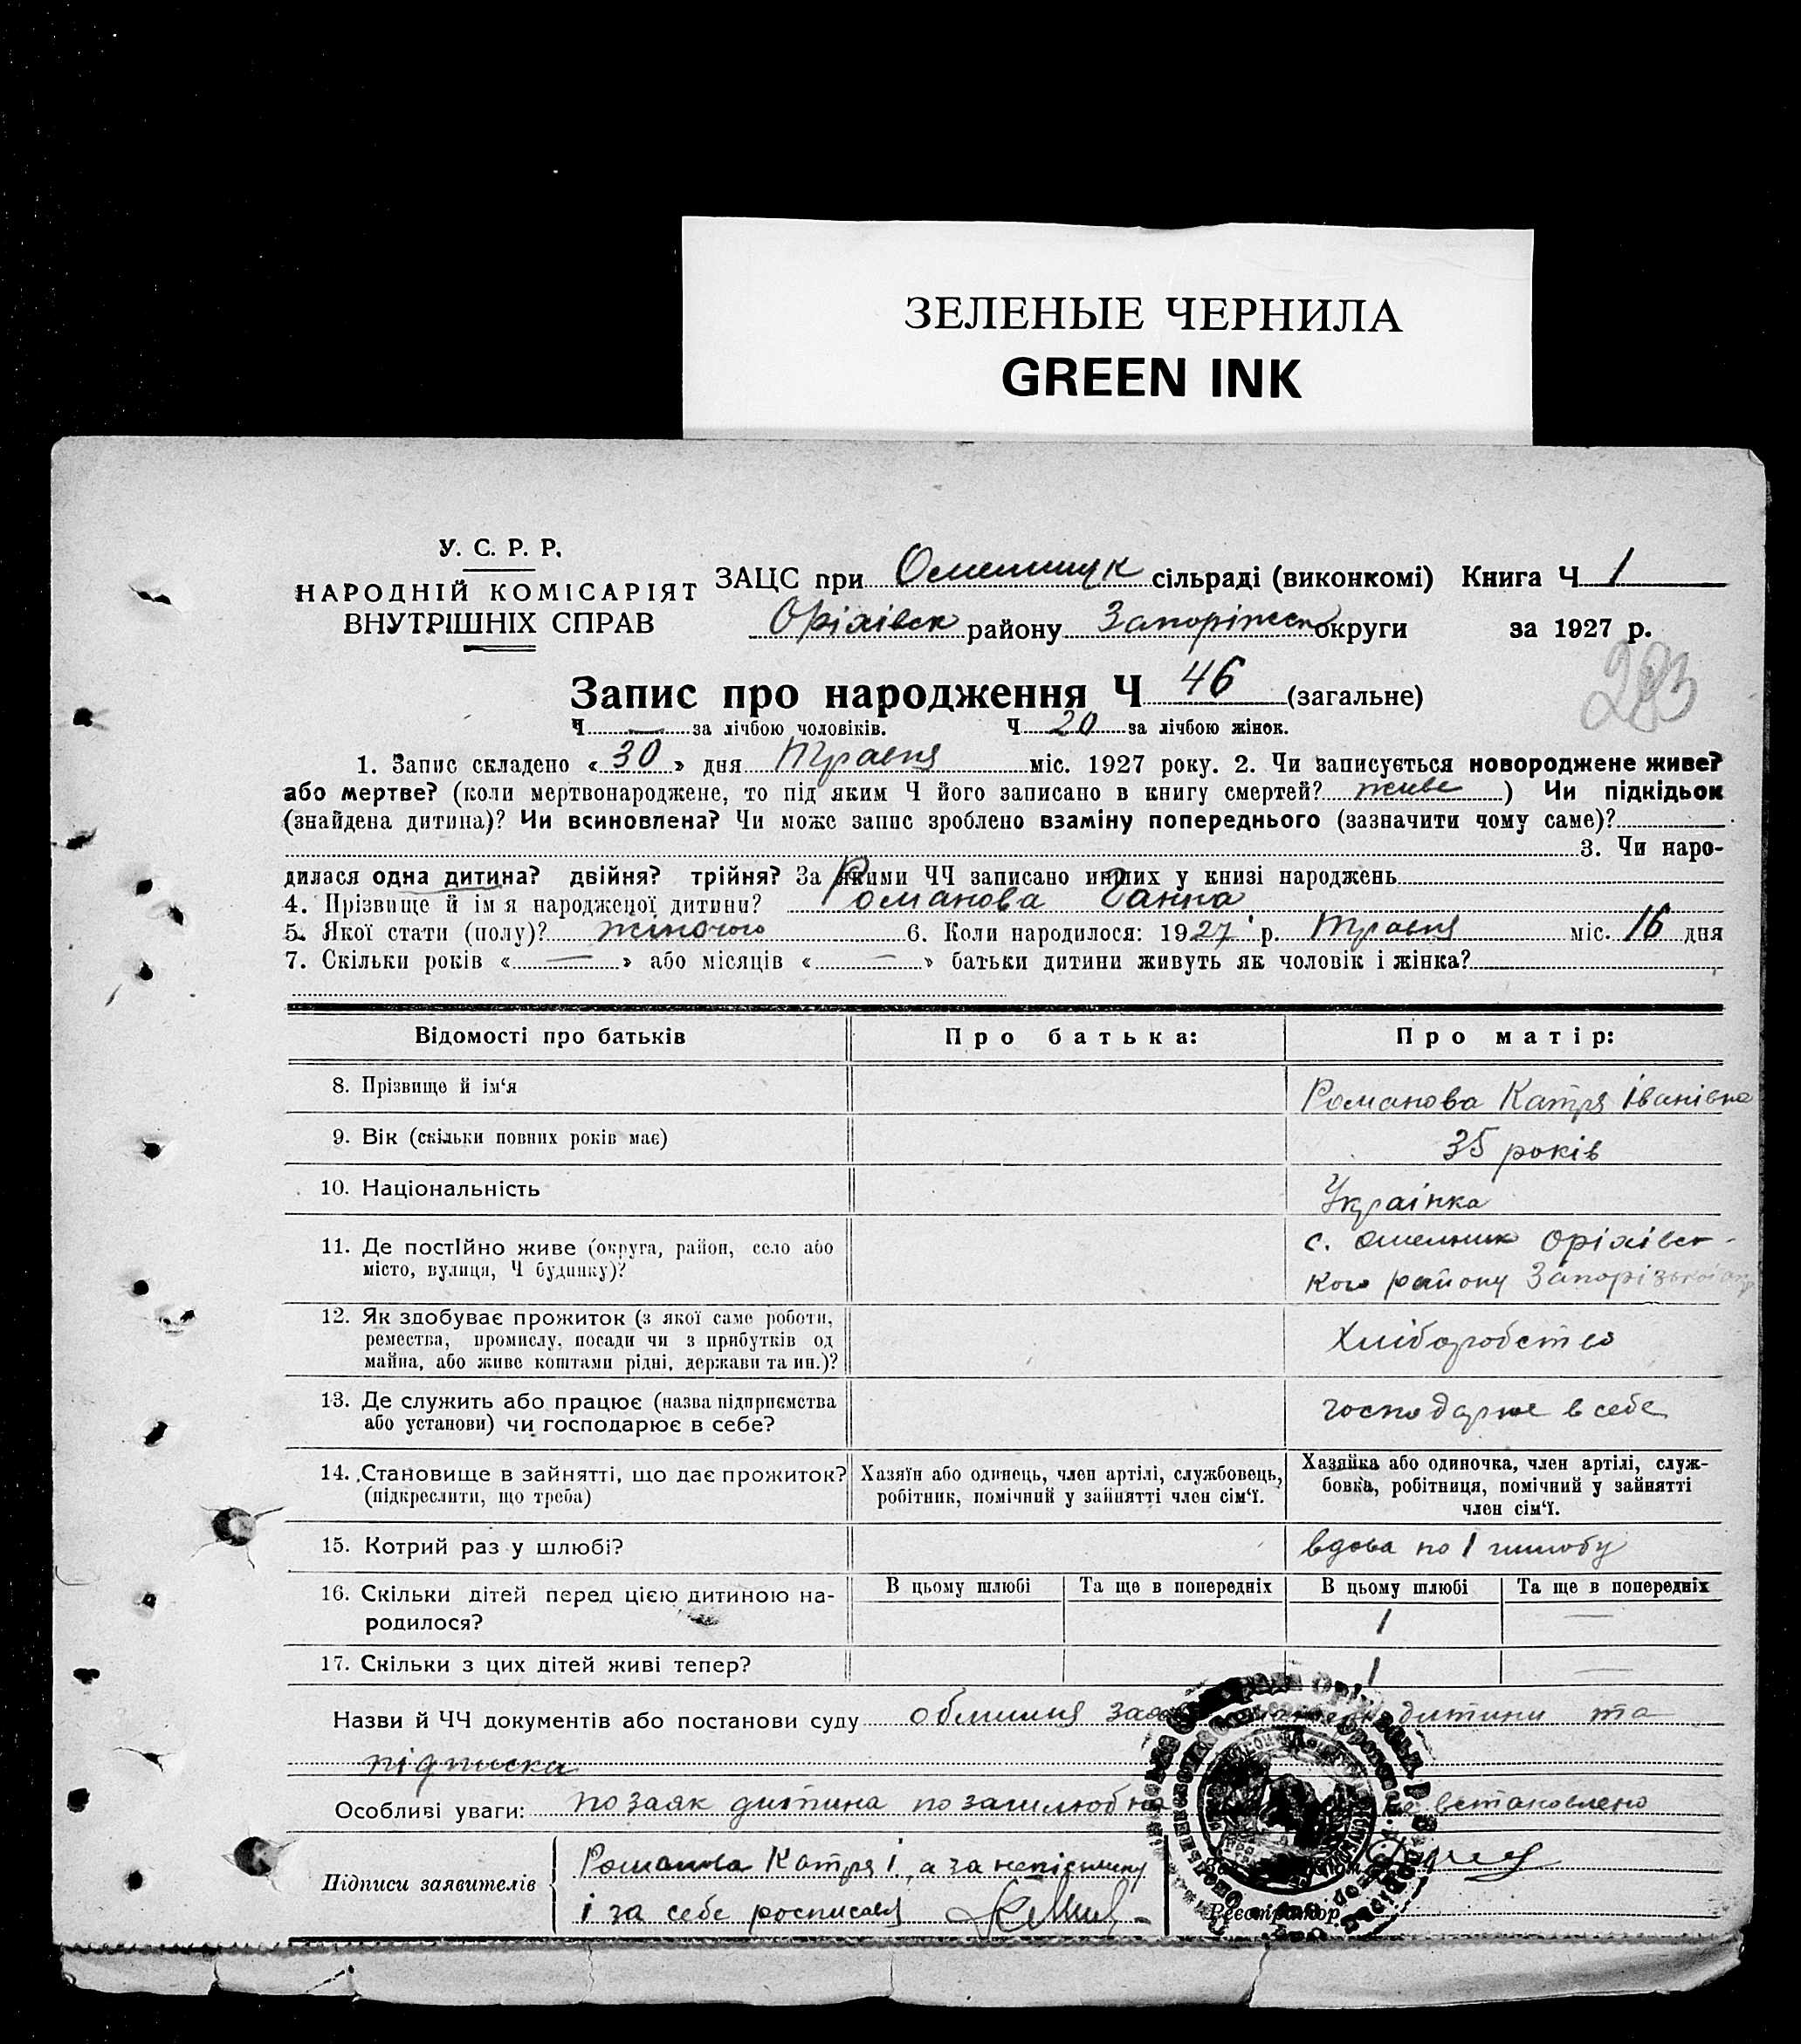 ЗЕЛЕНЫЕ ЧЕРНИЛА
GREEN INK
У. С. Р. Р.
НАРОДНІЙ КОМІСАРІЯТ
ВНУТРІШНІХ СПРАВ
ЗАЦС при сільраді (виконкомі) Книга Ч 1
Оріхівск району Запоріжск округи за 1927 р.
283
Запис про народження Ч 46 (загальне)
Ч — за лічбою чоловіків. Ч 20 за лічбою жінок.
1. Запис складено « 30 » дня Травня міс. 1927 року. 2. Чи записується новороджене живе?
або мертве? (коли мертвонароджене, то під яким Ч його записано в книгу смертей? живе ) Чи підкідьок
(знайдена дитина)? Чи всиновлена? Чи може запис зроблено взаміну попереднього (зазначити чому саме)?
3. Чи наро-
дилася одна дитина? двійня? трійня? За якими ЧЧ записано инших у книзі народжень
4. Прізвище й ім я народженої дитини? Романова Ганна
5. Якої стати (полу)? жіночого 6. Коли народилося: 1927 р. Травня міс. 16 дня
7. Скільки років « — » або місяців « — » батьки дитини живуть як чоловік і жінка?
Відомості про батьків Про батька: Про матір:
8. Прізвище й ім‘я Романова Катря Іванівна
9. Вік (скільки повних років має) 35 років
10. Національність Українка
11. Де постійно живе (округа, район, село або с. Омельник Оріхівсь-
місто, вулиця, Ч будинку)? кого району Запорізької окр
12. Як здобуває прожиток (з якої саме роботи,
ремества, промислу, посади чи з прибутків од Хліборобство
майна, або живе коштами рідні, держави та ин.)?
13. Де служить або працює (назва підприємства господарює в себе
або установи) чи господарює в себе?
14. Становище в зайнятті, що дає прожиток? Хазяїн або одинець, член артілі, службовець, Хазяйка або одиночка, член артілі, служ-
(підкреслити, що треба) робітник, помічний у зайнятті член сім‘ї. бовка, робітниця, помічний у зайнятті
член сім‘ї.
15. Котрий раз у шлюбі? вдова по 1 шлюбу
16. Скільки дітей перед цією дитиною на- В цьому шлюбі Та ще в попередніх В цьому шлюбі Та ще в попередніх
родилося? 1 —
17. Скільки з цих дітей живі тепер? 1 —
Назви й ЧЧ документів або постанови суду дитини та
підписка
Особливі уваги: позаяк дитина позашлюбна не встановлено
Підписи заявителів Романова Катря І. а за неписьмену
і за себе росписався
Реєстратор